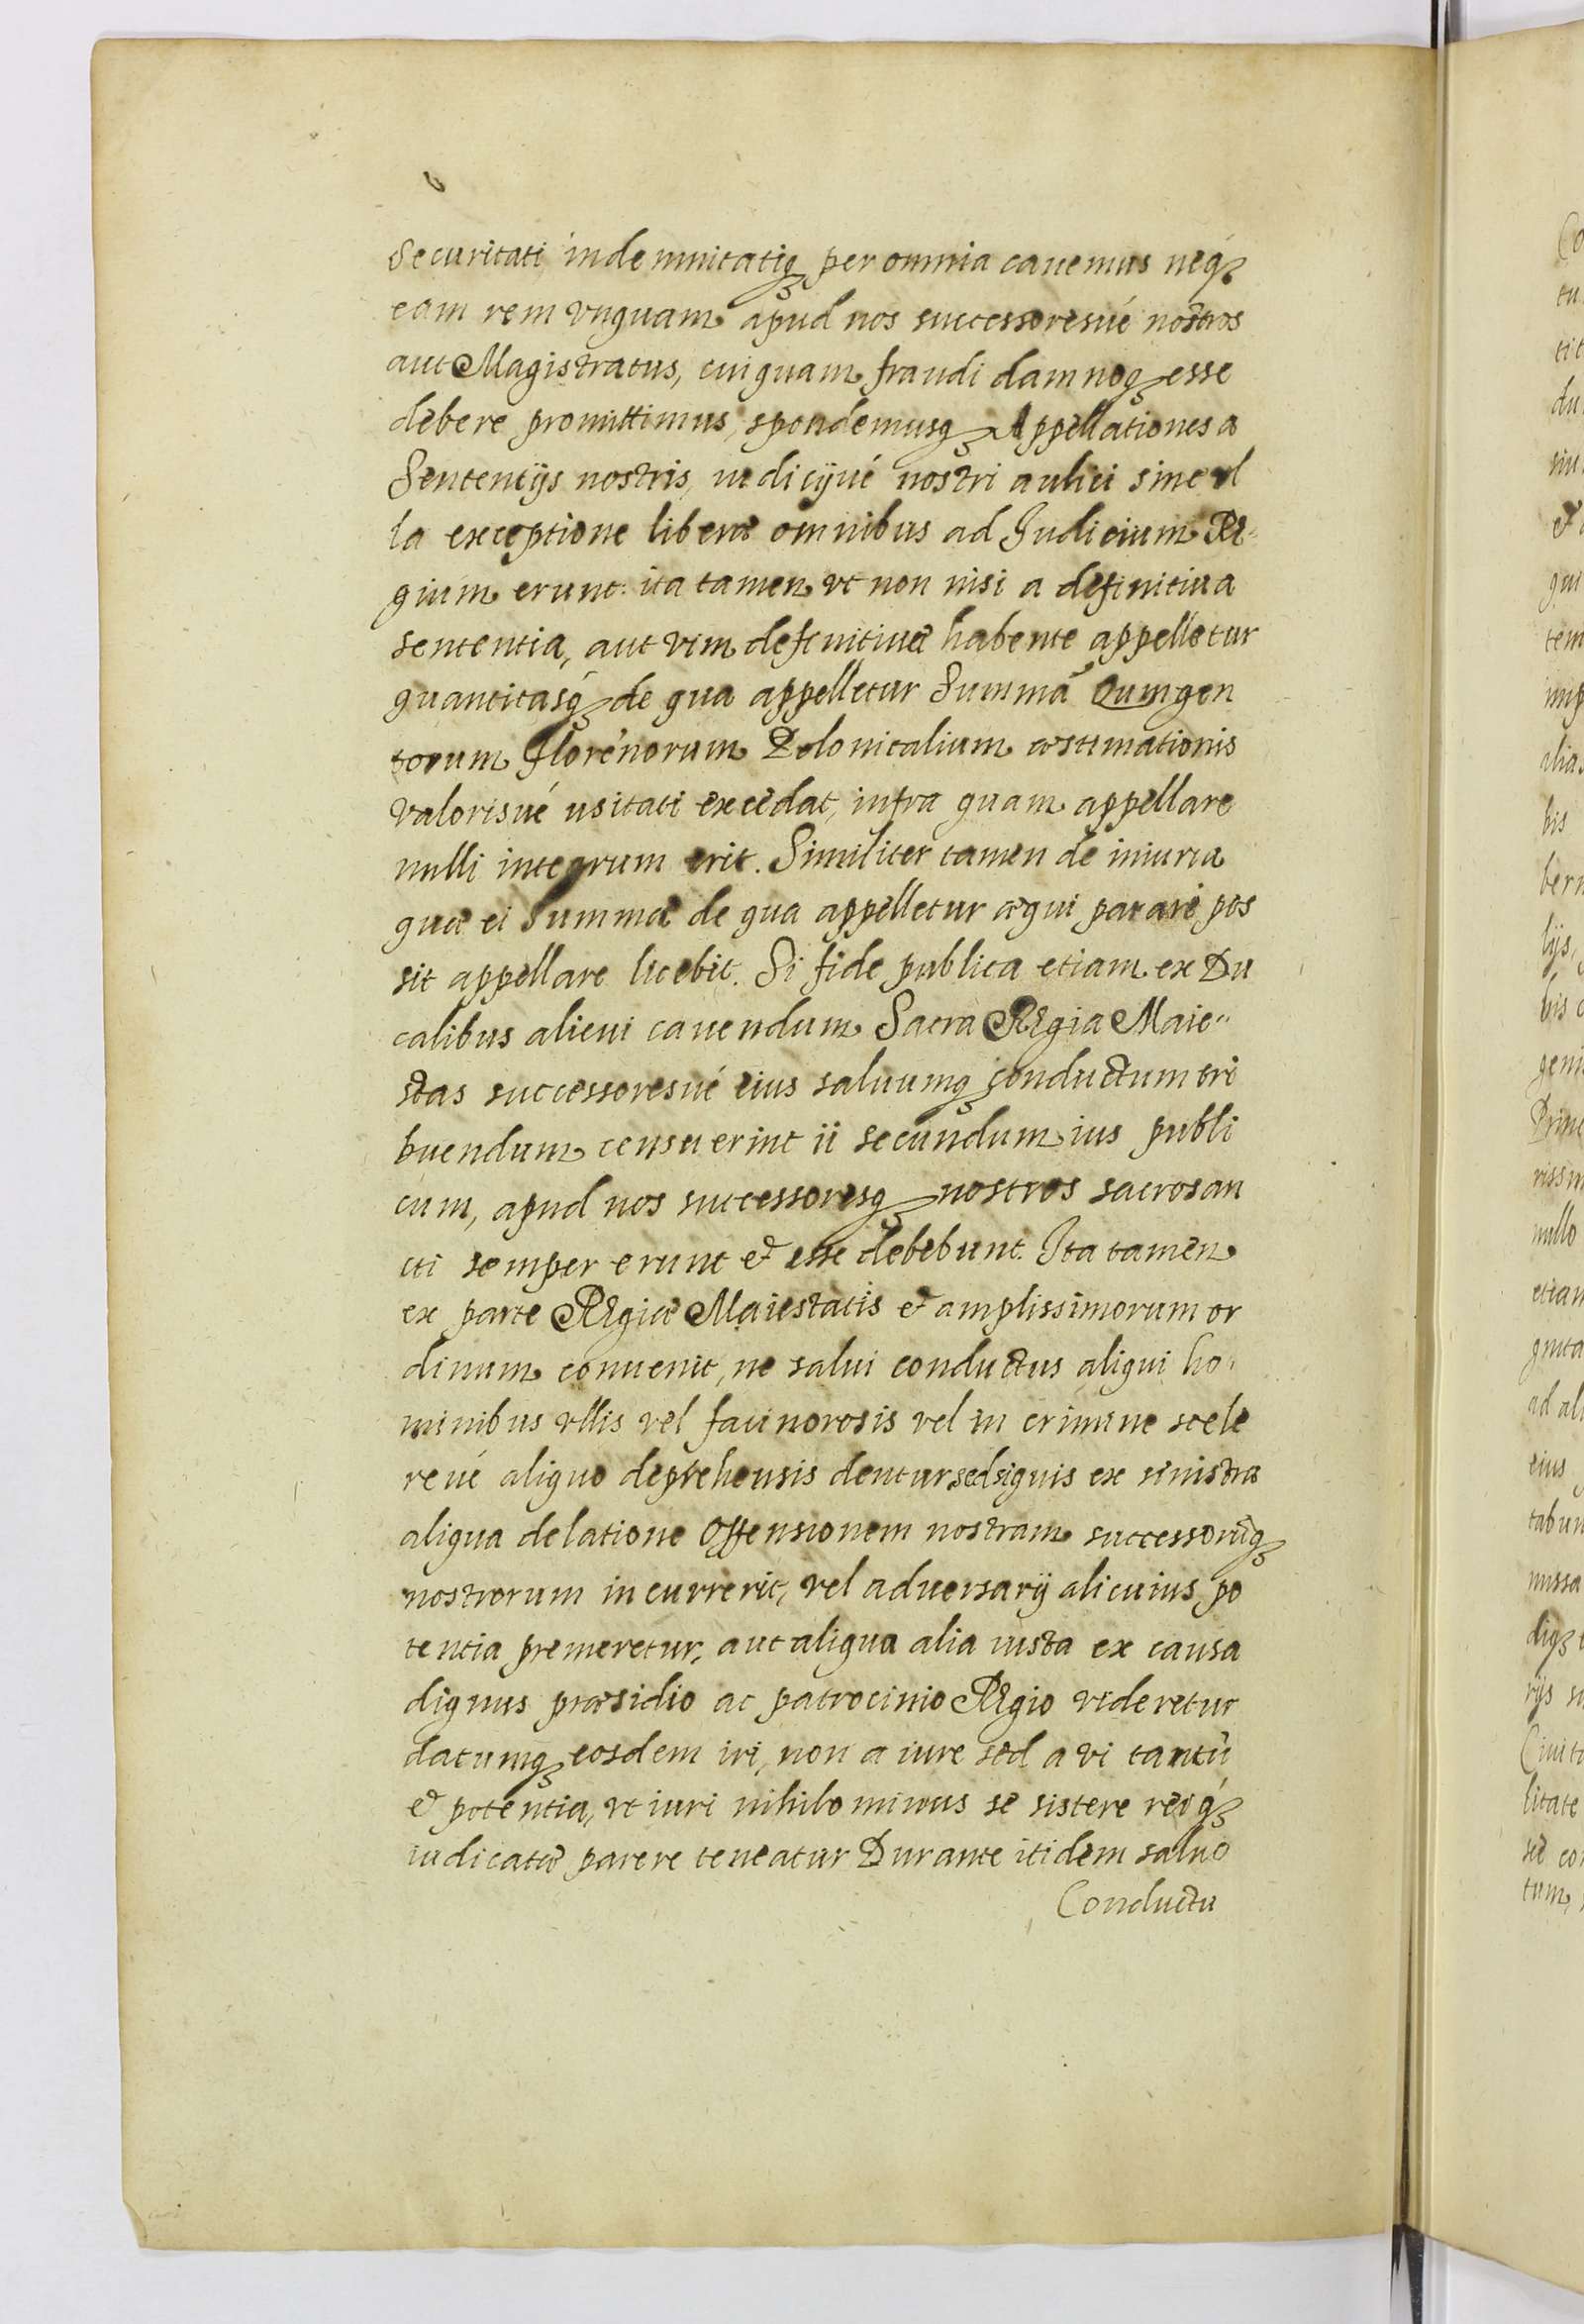 Securitati indemnitatiq₃ per omnia cauemus neq́₃
eam rem vnquam apud nos successoresué nostros
aut Magistratus, cuiquam fraudi damnoq₃ esse
debere promittimus, spondemusq₃ Appellationes a
Sententijs nostris, iudicijué nostri aulici sine vl
la exceptione liberæ omnibus ad Iudicium Re-
gium erunt: ita tamen vt non nisi a definitiua
sententia, aut vim definitiuæ habente appelletur
quantitasq́₃ de qua appelletur Summã Quingen
torum Florenorum Polonicalium æstimationis
valorisué usitati excedat, infra quam appellare
nulli integrum erit. Similiter tamen de iniuria
quæ ei Summæ de qua appelletur æqui parari pos
sit appellare licebit. Si fide publica etiam ex Du
calibus alicui cauendum Sacra Regia Maie-
stas successoresué eius saluumq₃ conductum tri
buendum censuerint ii secundum ius publi
cum, apud nos successoresq₃ nostros sacrosan
cti semper erunt & esse debebunt. Ita tamen
ex parte Regiæ Maiestatis & amplissimorum or
dinum conuenit, ne salui conductus aliqui ho-
minibus vllis vel facinorosis vel in crimine scele
reué aliquo deprehensis dentur sed siquis ex sinistra
aliqua delatione Offensionem nostram successorũq₃
nostrorum incurrerit, vel aduersarij alicuius po
tentia premeretur, aut aliqua alia iusta ex causa
dignus præsidio ac patrocinio Regio videretur
datumq₃ eosdem iri, non a iure sed a vi tantũ
& potentia, vt iuri nihilominus se sistere reiq́₃
iudicatæ parere teneatur Durante itidem saluo
Conductu